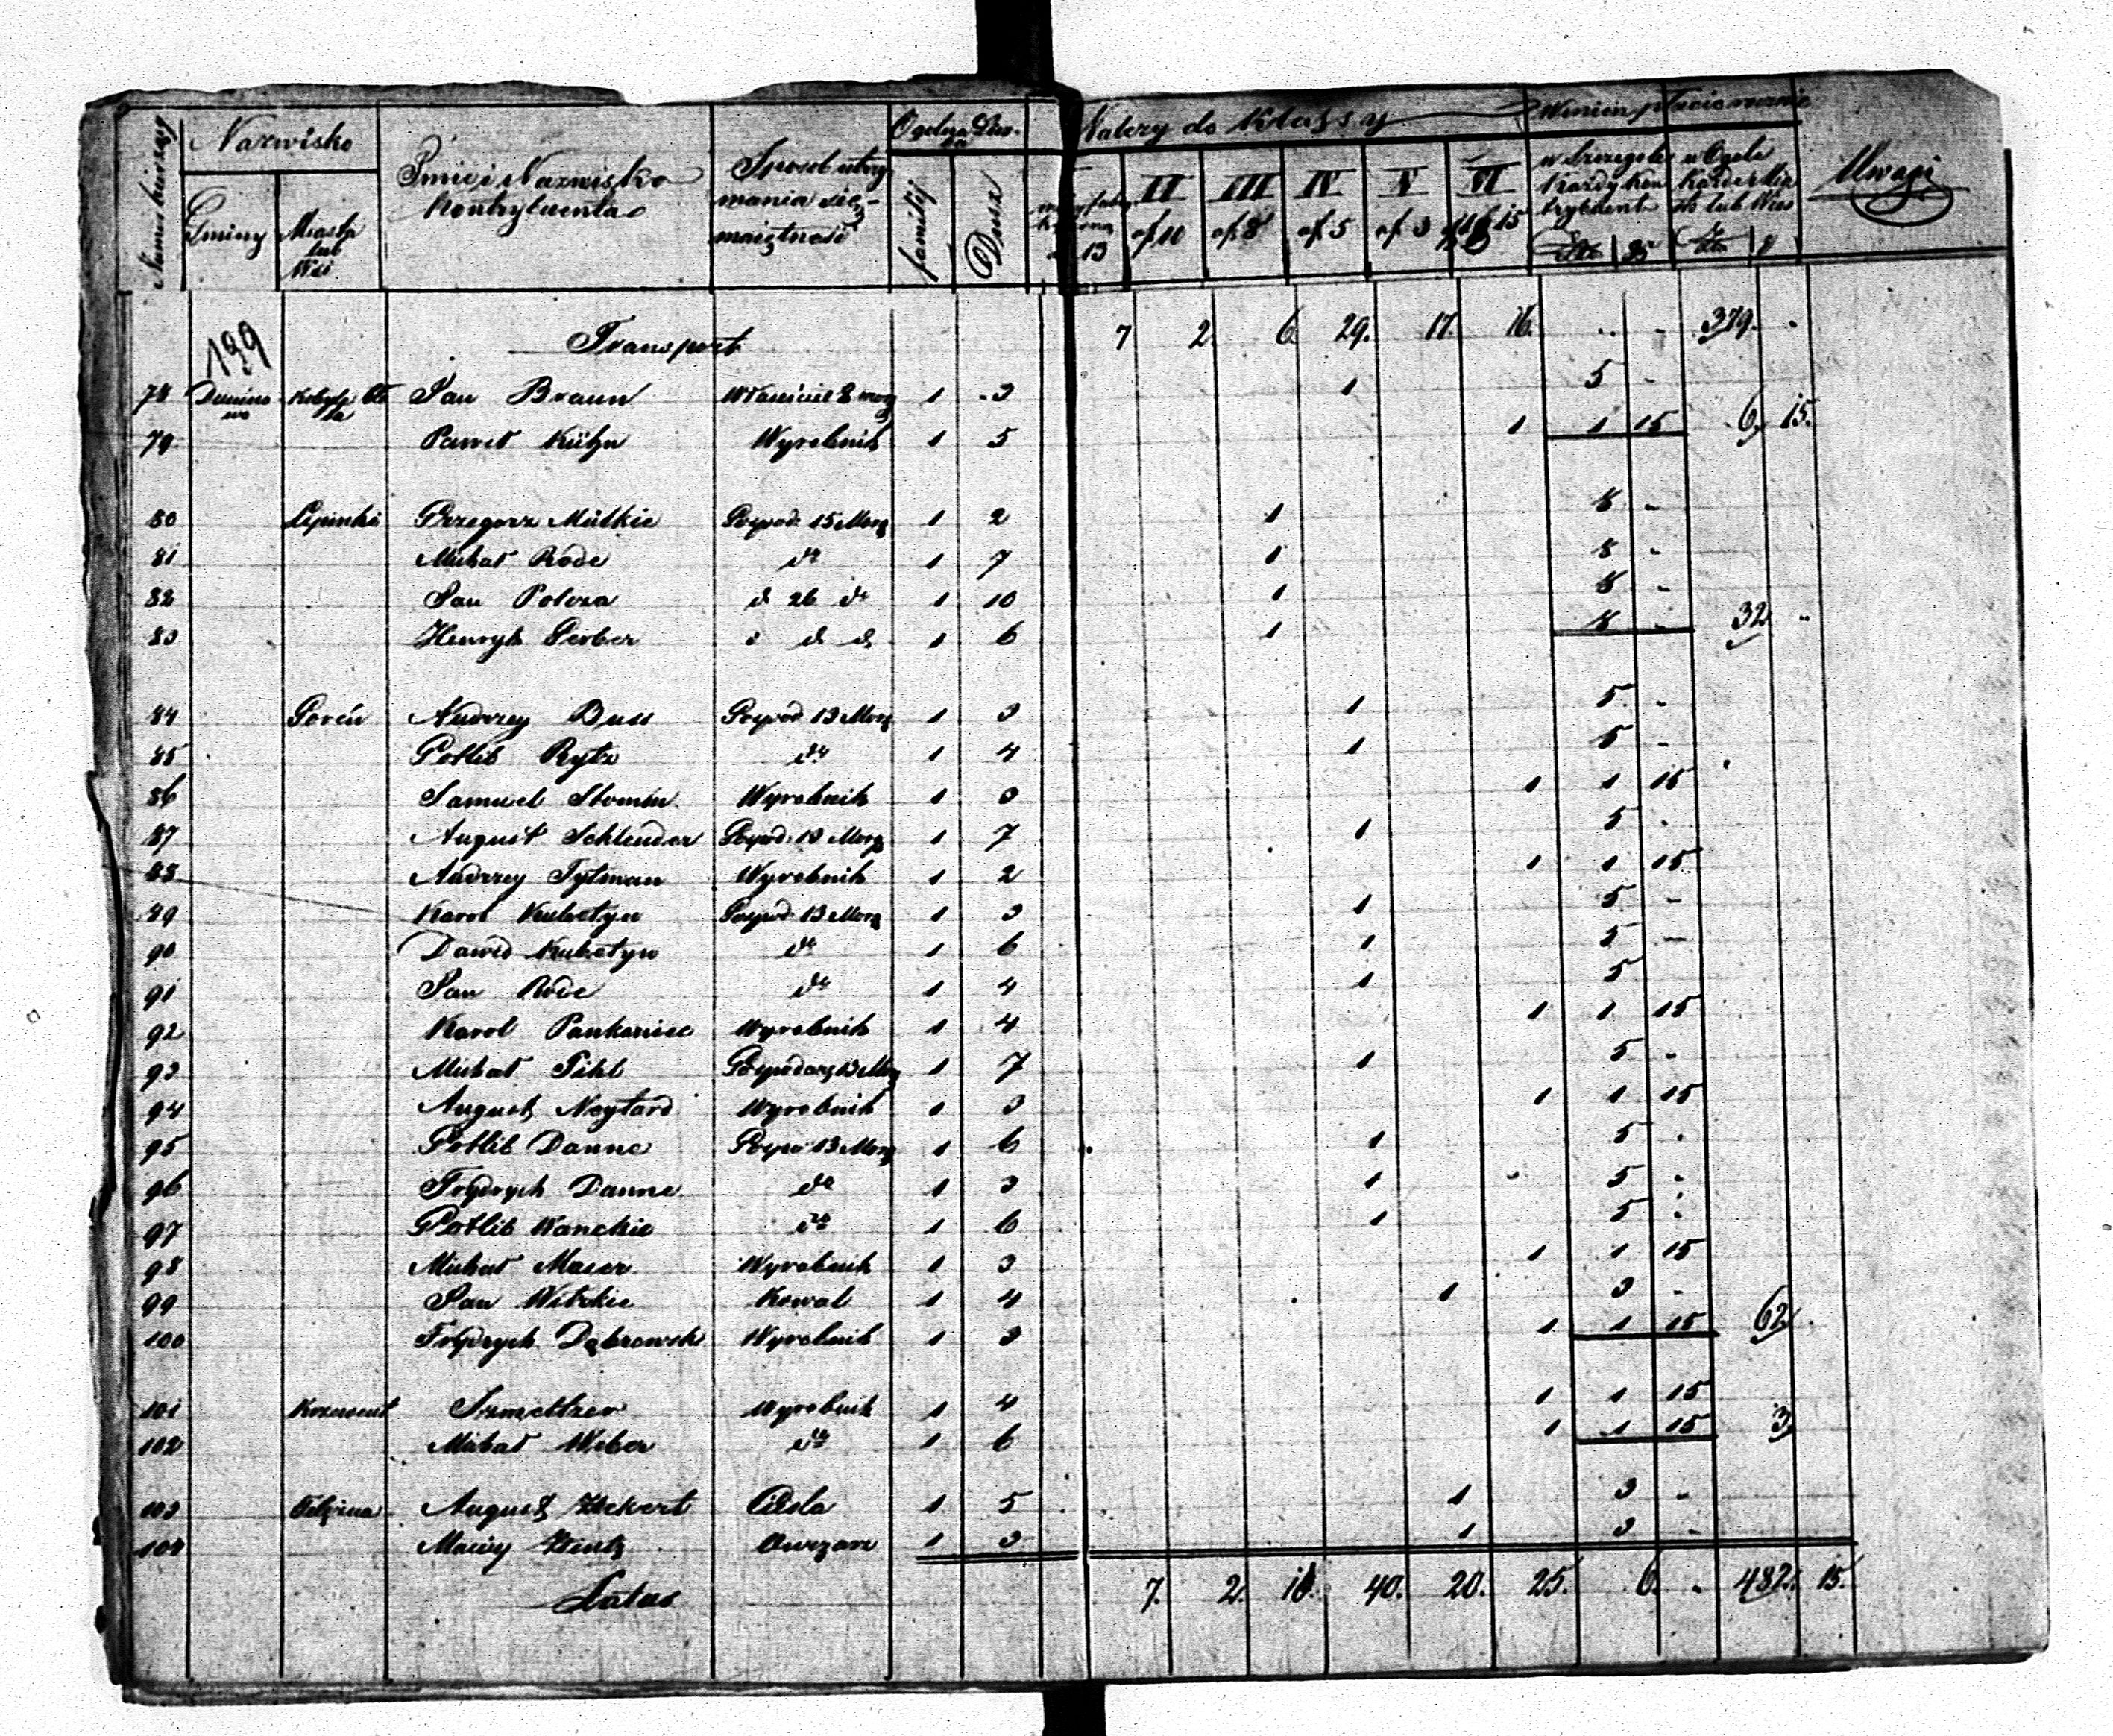 Numer bieżący Nazwisko Imię i Nazwisko Kontrybuenta Sposób utrzymania się majętność Ogólna Licz- ba Należy do Klassy Winien płacić rocznie Uwagi
Gminy Miasta lub Wsi familij Dusz 13 II zł 10 III zł 8 IV zł 5 V zł 3 VI zł 1 g 15 w Szczególe każdy Kontrybuent w Ogóle Każde Miasto lub Wieś
199
Transport 7 2. 6. 29. 17. 16. .. - 379. -
78 Jan Braun Właściciel 2 morg 1 3 1 5 -
79 Paweł Kühn Wyrobnik 1 5 1 1 15 6, 15.
80 Lipinki Grzegorz Mülkie Gospod. 15 Morg 1 2 1 8 -
81 Michał Rode dto 1 7 1 8 -
82 Jan Polcza d 26 dto 1 10 1 8 -
83 Henryk Gerber d d d 1 6 1 8 - 32 -
84 Goreń Andrzey Buss Gospod 13 Morg 1 3 1 5 -
85 Gotlib Rytz dto 1 4 1 5 -
86 Samuel Wyrobnik 1 3 1 1 15
87 August Schlender Gospod. 13 Morg 1 7 1 5 -
88 Andrzey Tytman Wyrobnik 1 2 1 1 15
89 Karol Gospod 13 Morg 1 3 1 5 -
90 Dawid dto 1 6 1 5 -
91 Jan Rode dto 1 4 1 5
92 Karol Pankaniec Wyrobnik 1 4 1 1 15
93 Michał Pihl Gospodarz 13 Morg 1 7 1 5 -
94 August Neytard Wyrobnik 1 3 1 1 15
95 Gotlib Danne Gospo 13 Morg 1 6 1 5 -
96 Frydrych Danne dto 1 3 1 5 -
97 Gotlib Wanckie dto 1 6 1 5 -
98 Michał Maser Wyrobnik 1 3 1 1 15
99 Jan Witzkie Kowal 1 4 1 3 -
100 Frydrych Dąbrowski Wyrobnik 1 3 1 1 15 62
101 Krzewent Szmeltzer Wyrobnik 1 4 1 1 15
102 Michał Weber dto 1 6 1 1 15 3
103 August Cieśla 1 5 1 3 -
104 Hintz Owczarz 1 3 1 3 -
Latus 7. 2. 10. 40. 20. 25. 6. - 482. 15.